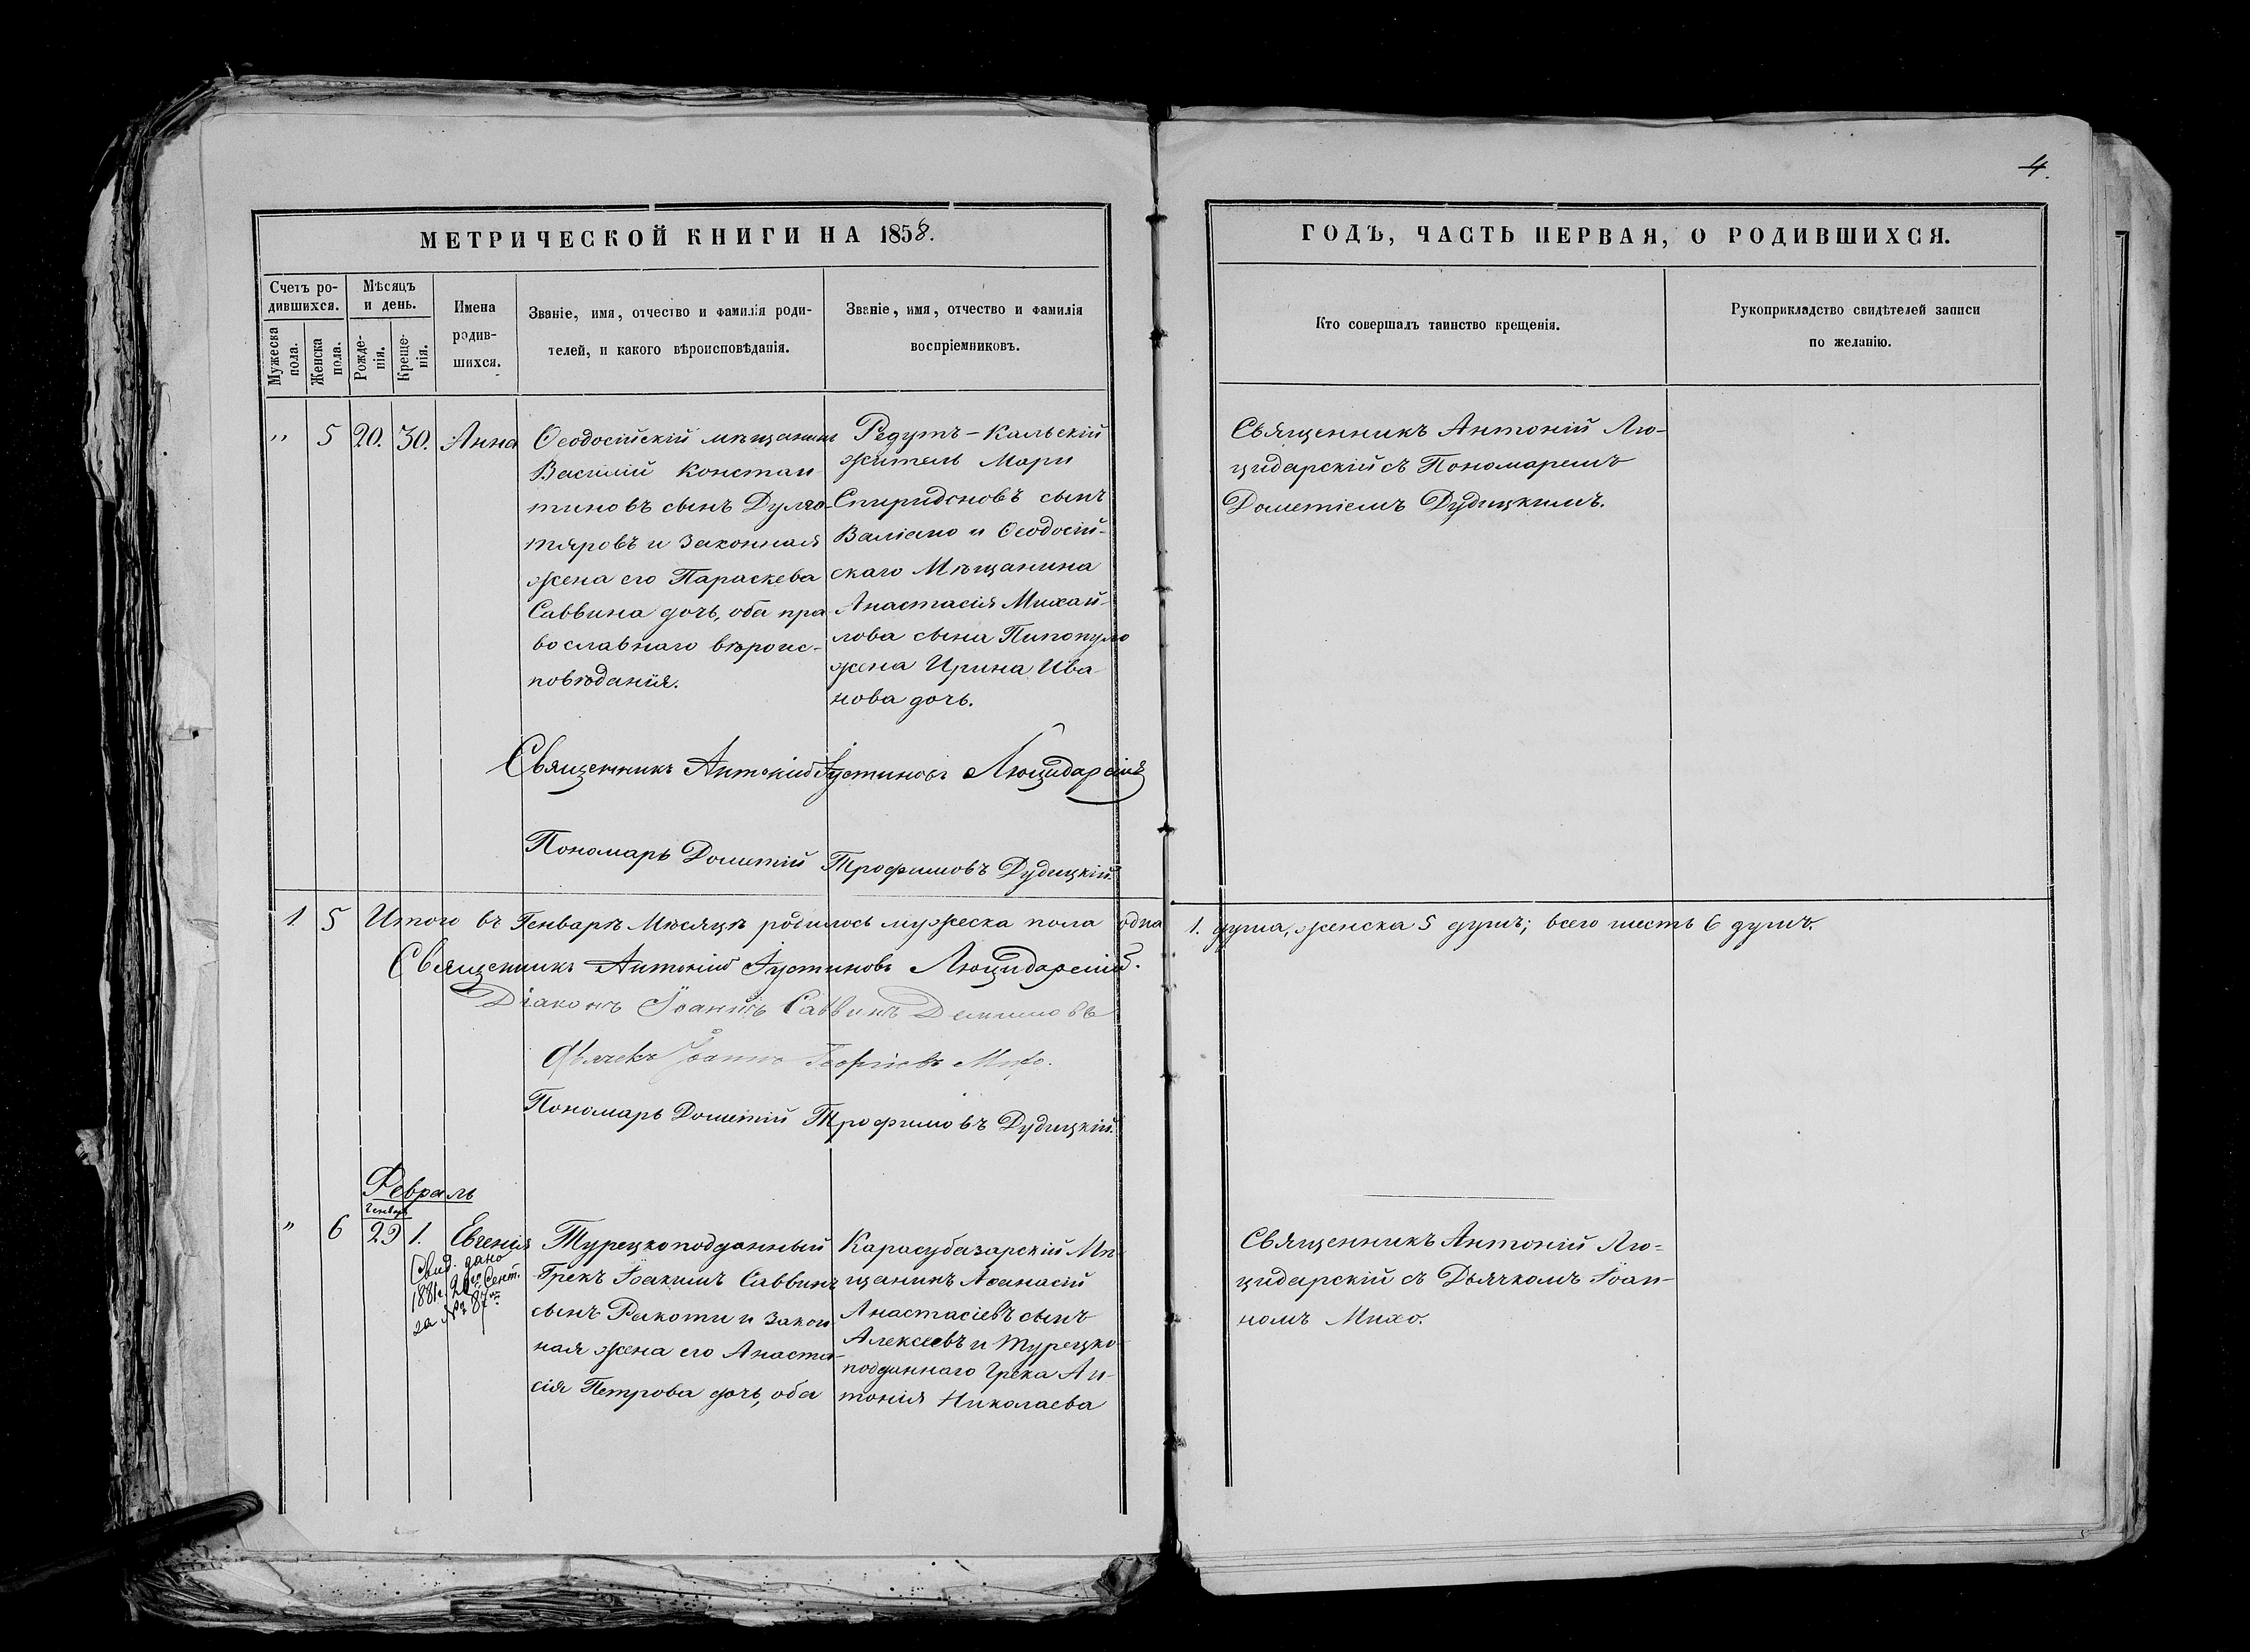 4.
МЕТРИЧЕСКОЙ КНИГИ НА 1858.
Счетъ ро-
дившихся.
Мужеска
пола.
Женска
пола.
Мѣсяцъ
и день.
Рожде-
нія.
Креще-
нія.
Имена
родив-
шихся.
Званіе, имя, отчество и фамилія роди-
телей, и какого вѣроисповѣданія.
Званіе, имя, отчество и фамилія
воспріемниковъ.
ГОДЪ, ЧАСТЬ ПЕРВАЯ, О РОДИВШИХСЯ.
Кто совершалъ таинство крещенія.
Рукоприкладство свидѣтелей записи
по желанію.
" 5 20. 30. Анна
Ѳеодосійскій мѣщанинъ
Василій Констан-
тиновъ сынъ Дулго-
тяровъ и законная
жена его Параскева
Саввина дочь, оба пра
вославнаго вѣроис-
повѣданія.
Редутъ-Кальскій
житель Мари
Спиридоновъ сынъ
Валіано и Ѳеодосій-
скаго Мѣщанина
Анастасія Михай-
лова сына Пипопуло
жена Ирина Ива
нова дочь.
Священникъ Антоній Лю-
цидарскій съ Пономаремъ
Дометіемъ Дудицкимъ.
Священникъ Антоній Іустиновъ Люцидарскій
Пономарь Дометій Трофимовъ Дудицкій.
1. 5 Итого въ Генварѣ Мѣсяцѣ родилось мужеска пола одна 1. душа, женска 5 душъ; всего шесть 6 душъ.
Священникъ Антоній Іустиновъ Люцидарскій.
Діаконъ Іоаннъ Саввинъ Демишовъ
Дьячекъ Іоаннъ Георгіевъ Михо.
Пономарь Дометій Трофимовъ Дудицкій.
Февраль
Генваря
" 6 29 1. Евгенія
Свид. дано
1881г. 20го Сент.
за № 87
Турецкоподданный
Грекъ Іоакимъ Саввинъ
сынъ Ракоти и закон
ная жена его Анаста-
сія Петрова дочь, оба
Карасубазарскій Мѣ
щанинъ Аѳанасій
Анастасіевъ сынъ
Алексѣевъ и турецко-
подданнаго Грека Ан-
тонія Николаева
Священникъ Антоній Лю-
цидарскій съ Дьячкомъ Іоан-
номъ Михо.